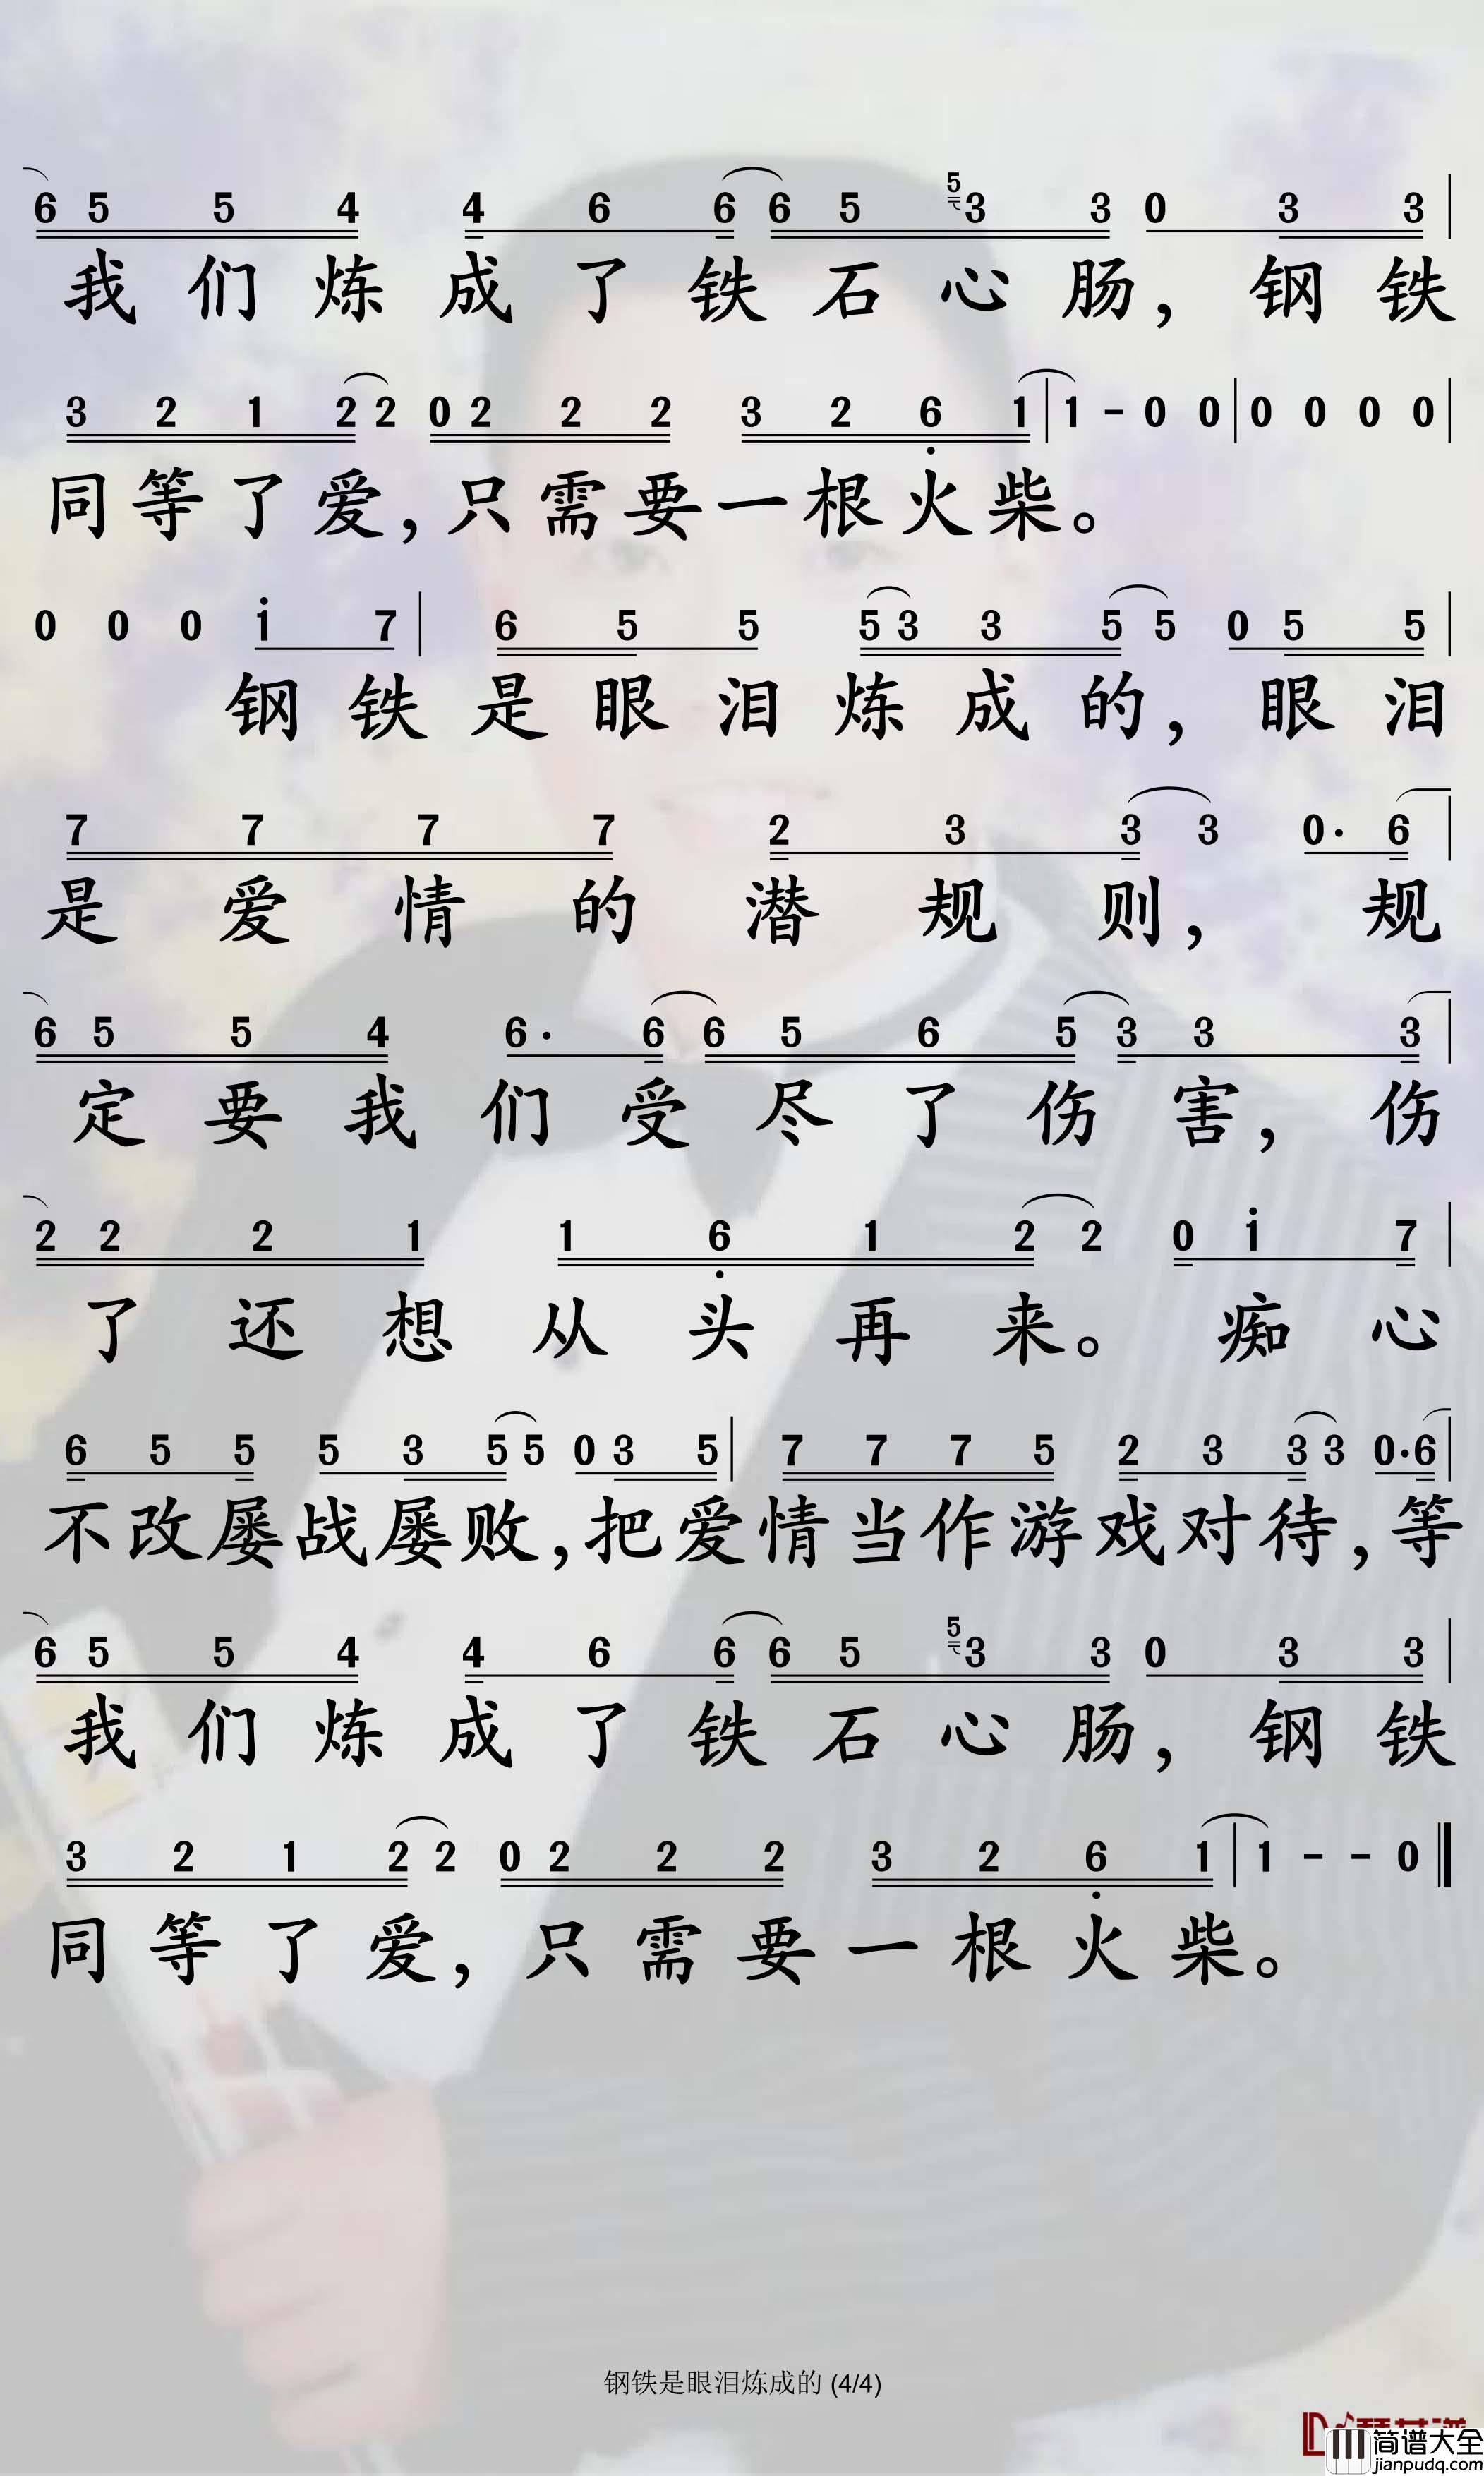 6 5 5 4 4 6 6 6 5 5 3 3 0 3 3
我们炼成了铁石心肠，钢铁
3 2 1 2 2 0 2 2 2 3 2 6 1 | 1 - 0 0 | 0 0 0 0 |
同等了爱，只需要一根火柴。
0 0 0 1 7 | 6 5 5 5 3 3 5 5 0 5 5 |
钢铁是眼泪炼成的，眼泪
7 7 7 7 2 3 3 3 0· 6 |
是爱情的潜规则，规
6 5 5 4 6· 6 6 5 6 5 3 3 3 |
定要我们受尽了伤害，伤
2 2 2 1 1 6 1 2 2 0 1 7 |
了还想从头再来。痴心
6 5 5 5 3 5 5 0 3 5 | 7 7 7 5 2 3 3 3 0· 6 |
不改屡战屡败，把爱情当作游戏对待，等
6 5 5 4 4 6 6 6 5 5 3 3 0 3 3 |
我们炼成了铁石心肠，钢铁
3 2 1 2 2 0 2 2 2 3 2 6 1 | 1 - - 0 ‖
同等了爱，只需要一根火柴。
钢铁是眼泪炼成的 (4/4)
简谱大全
jianpudq.com